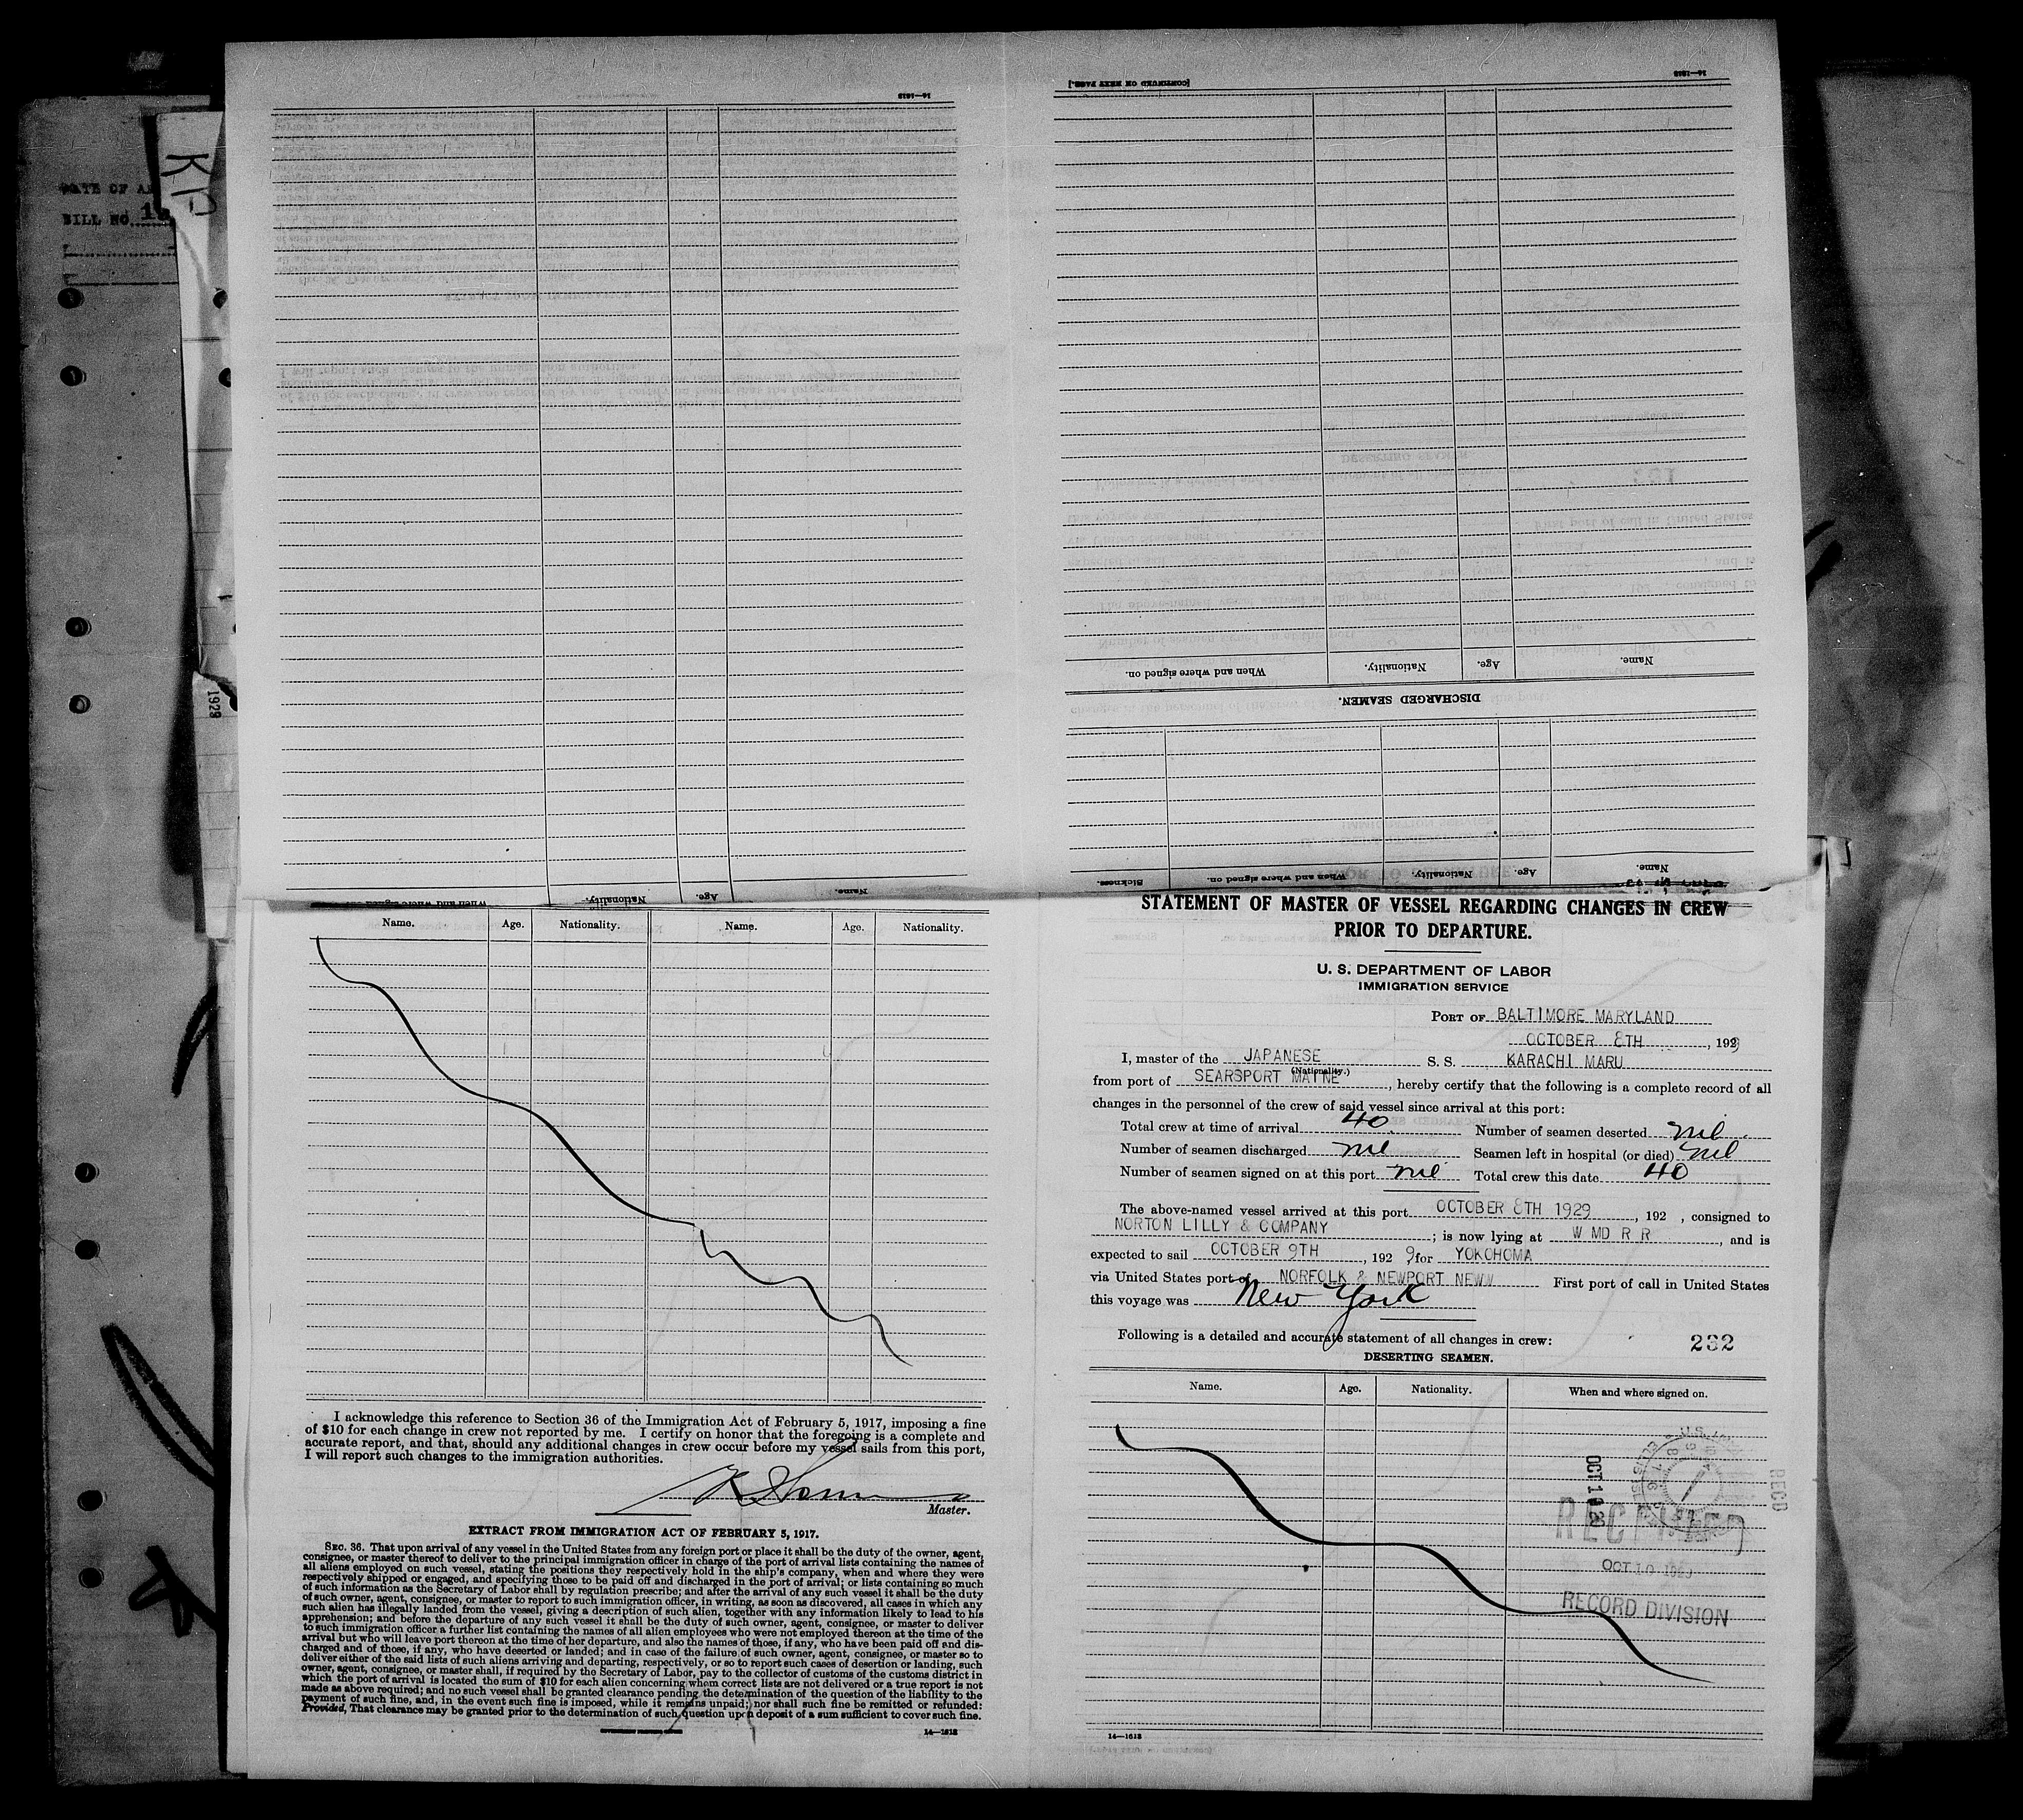 DATE OF
BILL NO. 1
KIP
1929
14—1613
[CONTINUED ON NEXT PAGE.]
14—1613
When and where signed on.
Nationality.
Age.
Name.
DISCHARGED SEAMEN.
Sickness.
When and where signed on.
Nationality.
Age.
Name.
When and where signed on.
Nationality.
Age.
Name.
Name.
Age.
Nationality.
Name.
Age.
Nationality.
I acknowledge this reference to Section 36 of the Immigration Act of February 5, 1917, imposing a fine
of $10 for each change in crew not reported by me. I certify on honor that the foregoing is a complete and
accurate report, and that, should any additional changes in crew occur before my vessel sails from this port,
I will report such changes to the immigration authorities.
Master.
EXTRACT FROM IMMIGRATION ACT OF FEBRUARY 5, 1917.
SEC. 36. That upon arrival of any vessel in the United States from any foreign port or place it shall be the duty of the owner, agent,
consignee, or master thereof to deliver to the principal immigration officer in charge of the port of arrival lists containing the names of
all aliens employed on such vessel, stating the positions they respectively hold in the ship's company, when and where they were
respectively shipped or engaged, and specifying those to be paid off and discharged in the port of arrival; or lists containing so much
of such information as the Secretary of Labor shall by regulation prescribe; and after the arrival of any such vessel it shall be the duty
of such owner, agent, consignee, or master to report to such immigration officer, in writing, as soon as discovered, all cases in which any
such alien has illegally landed from the vessel, giving a description of such alien, together with any information likely to lead to his
apprehension; and before the departure of any such vessel it shall be the duty of such owner, agent, consignee, or master to deliver
to such immigration officer a further list containing the names of all alien employees who were not employed thereon at the time of the
arrival but who will leave port thereon at the time of her departure, and also the names of those, if any, who have been paid off and dis-
charged and of those, if any, who have deserted or landed; and in case of the failure of such owner, agent, consignee, or master so to
deliver either of the said lists of such aliens arriving and departing, respectively, or so to report such cases of desertion or landing, such
owner, agent, consignee, or master shall, if required by the Secretary of Labor, pay to the collector of customs of the customs district in
which the port of arrival is located the sum of $10 for each alien concerning whom correct lists are not delivered or a true report is not
made as above required; and no such vessel shall be granted clearance pending the determination of the question of the liability to the
payment of such fine, and, in the event such fine is imposed, while it remains unpaid; nor shall such fine be remitted or refunded:
Provided, That clearance may be granted prior to the determination of such question upon deposit of a sum sufficient to cover such fine.
14—1613
STATEMENT OF MASTER OF VESSEL REGARDING CHANGES IN CREW
PRIOR TO DEPARTURE.
U. S. DEPARTMENT OF LABOR
IMMIGRATION SERVICE
PORT OF BALTIMORE MARYLAND
OCTOBER 8TH, 1929
I, master of the JAPANESE S. S. KARACHI MARU
(Nationality.)
from port of SEARSPORT MAINE, hereby certify that the following is a complete record of all
changes in the personnel of the crew of said vessel since arrival at this port:
Total crew at time of arrival 40 Number of seamen deserted nil
Number of seamen discharged nil Seamen left in hospital (or died) nil
Number of seamen signed on at this port nil Total crew this date 40
The above-named vessel arrived at this port OCTOBER 8TH 1929, 192 , consigned to
NORTON LILLY & COMPANY; is now lying at W MD R R, and is
expected to sail OCTOBER 9TH, 192 9 for YOKOHOMA
via United States port of NORFOLK & NEWPORT NEWW First port of call in United States
this voyage was New York
Following is a detailed and accurate statement of all changes in crew: 232
DESERTING SEAMEN.
Name.
Age.
Nationality.
When and where signed on.
RECD
RECEIVED
OCT 10 1929
RECORD DIVISION
14—1613